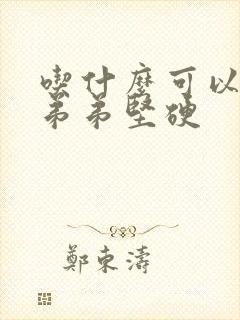 喫什麼可以
弟弟堅硬
鄭東濤